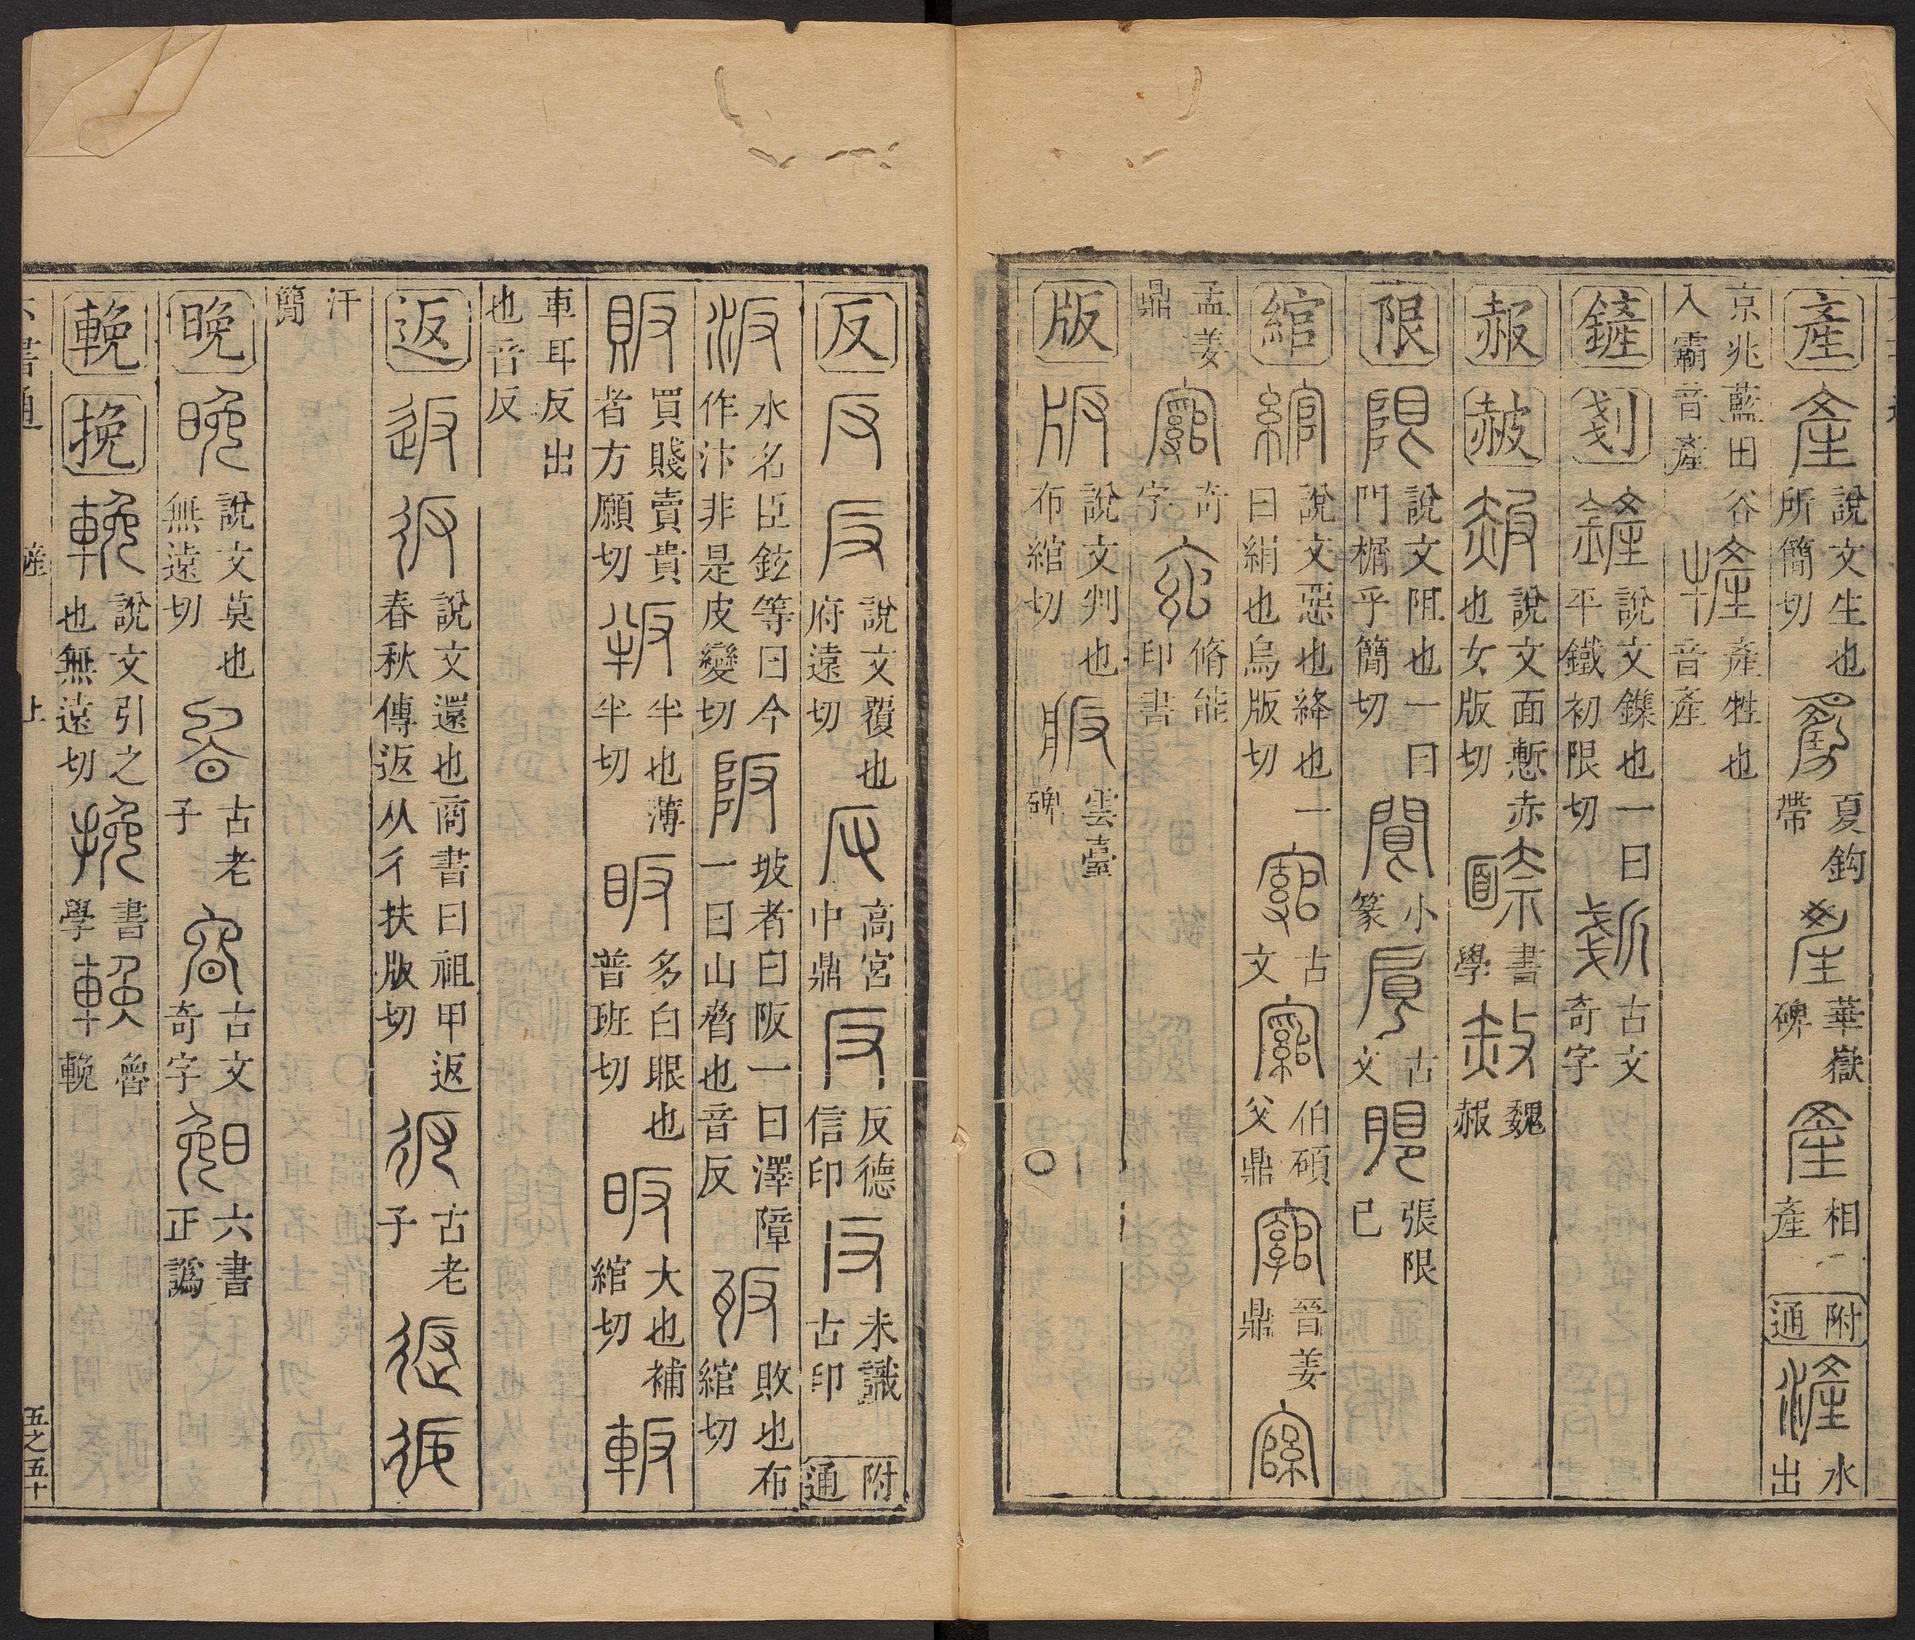 產 產 說文生也所簡切 產 夏鈎帶 產 華嶽碑 產 相產 附通 滻 水出
京兆藍田谷入霸音產 㹌 產牲也音產
鏟 剗 鏟 說文鏶也一曰平鐵初限切 古文奇字
赧 赧 說文面慙赤也女版切 書學 魏赧
限 限 說文阻也一曰門榍乎簡切 小篆 古文 張限已
綰 綰 說文惡也絳也一曰絹也烏版切 古文 伯碩父鼎 晉姜鼎
孟姜鼎 奇字 脩能印書
版 版 說文判也布綰切 雲臺碑 〇
反 反 反 說文覆也府遠切 高宮中鼎 反 反德信印 反 未識古印 附通
汳 水名臣鉉等曰今作汴非是皮變切 阪 坡者曰阪一曰澤障一曰山脅也音反 敗也布綰切
販 買賤賣貴者方願切 半也薄半切 眅 多白眼也普班切 昄 大也補綰切 䡊
車耳反出也音反
返 返 彶 說文還也商書曰祖甲返春秋傳返从彳扶版切 古老子
汗簡
晚 晚 說文莫也無遠切 古老子 古文奇字 晚 六書正譌
輓 挽 輓 說文引之也無遠切 挽 書學 輓 魯輓
六書通 產 上 五之五十